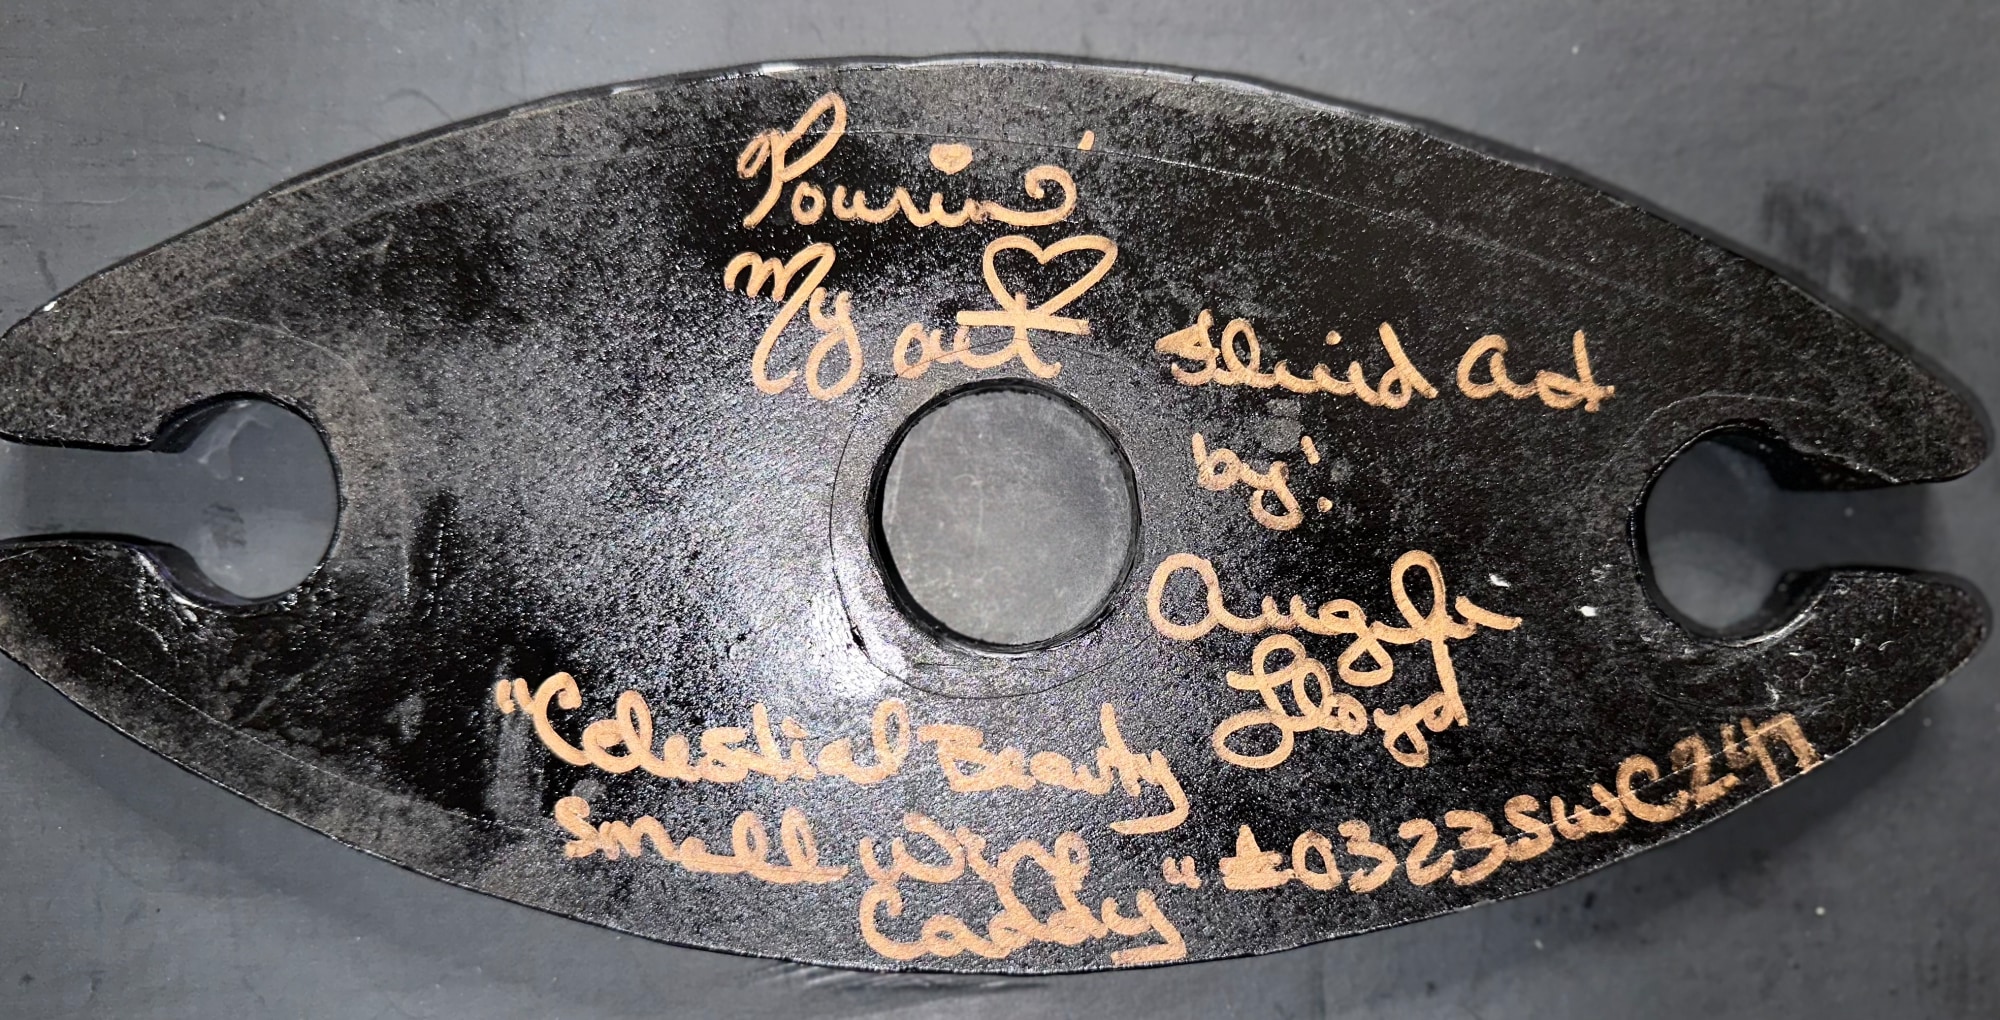 Pourin'
My ♡ out
Fluid Art
by:
Angela
Lloyd
"Celestial Beauty
Small Wine
Caddy" #0323SWC247